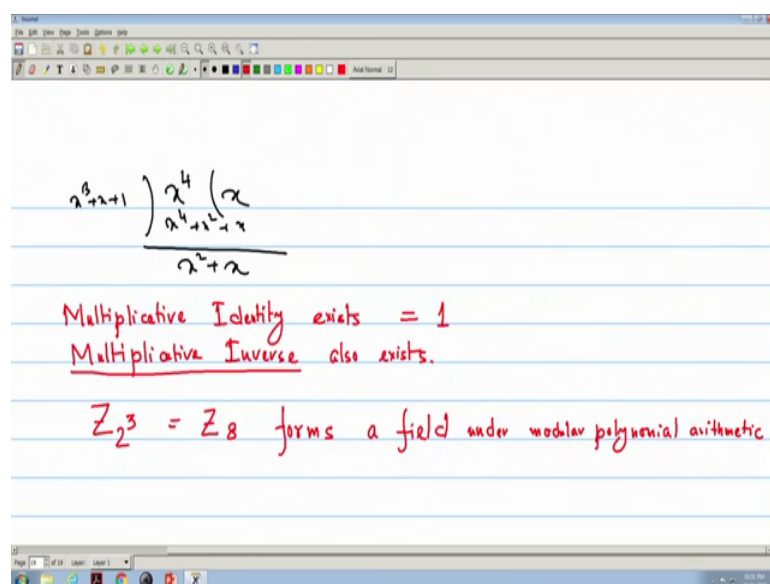 Journal
File Edit View Page Tools Options Help
Arial Normal 12
x³+x+1 ) x⁴ ( x
x⁴+x²+x
x²+x
Multiplicative Identity exists = 1
Multiplicative Inverse also exists.
Z₂³ = Z₈ forms a field under modular polynomial arithmetic
Page 19 of 19 Layer: Layer 1